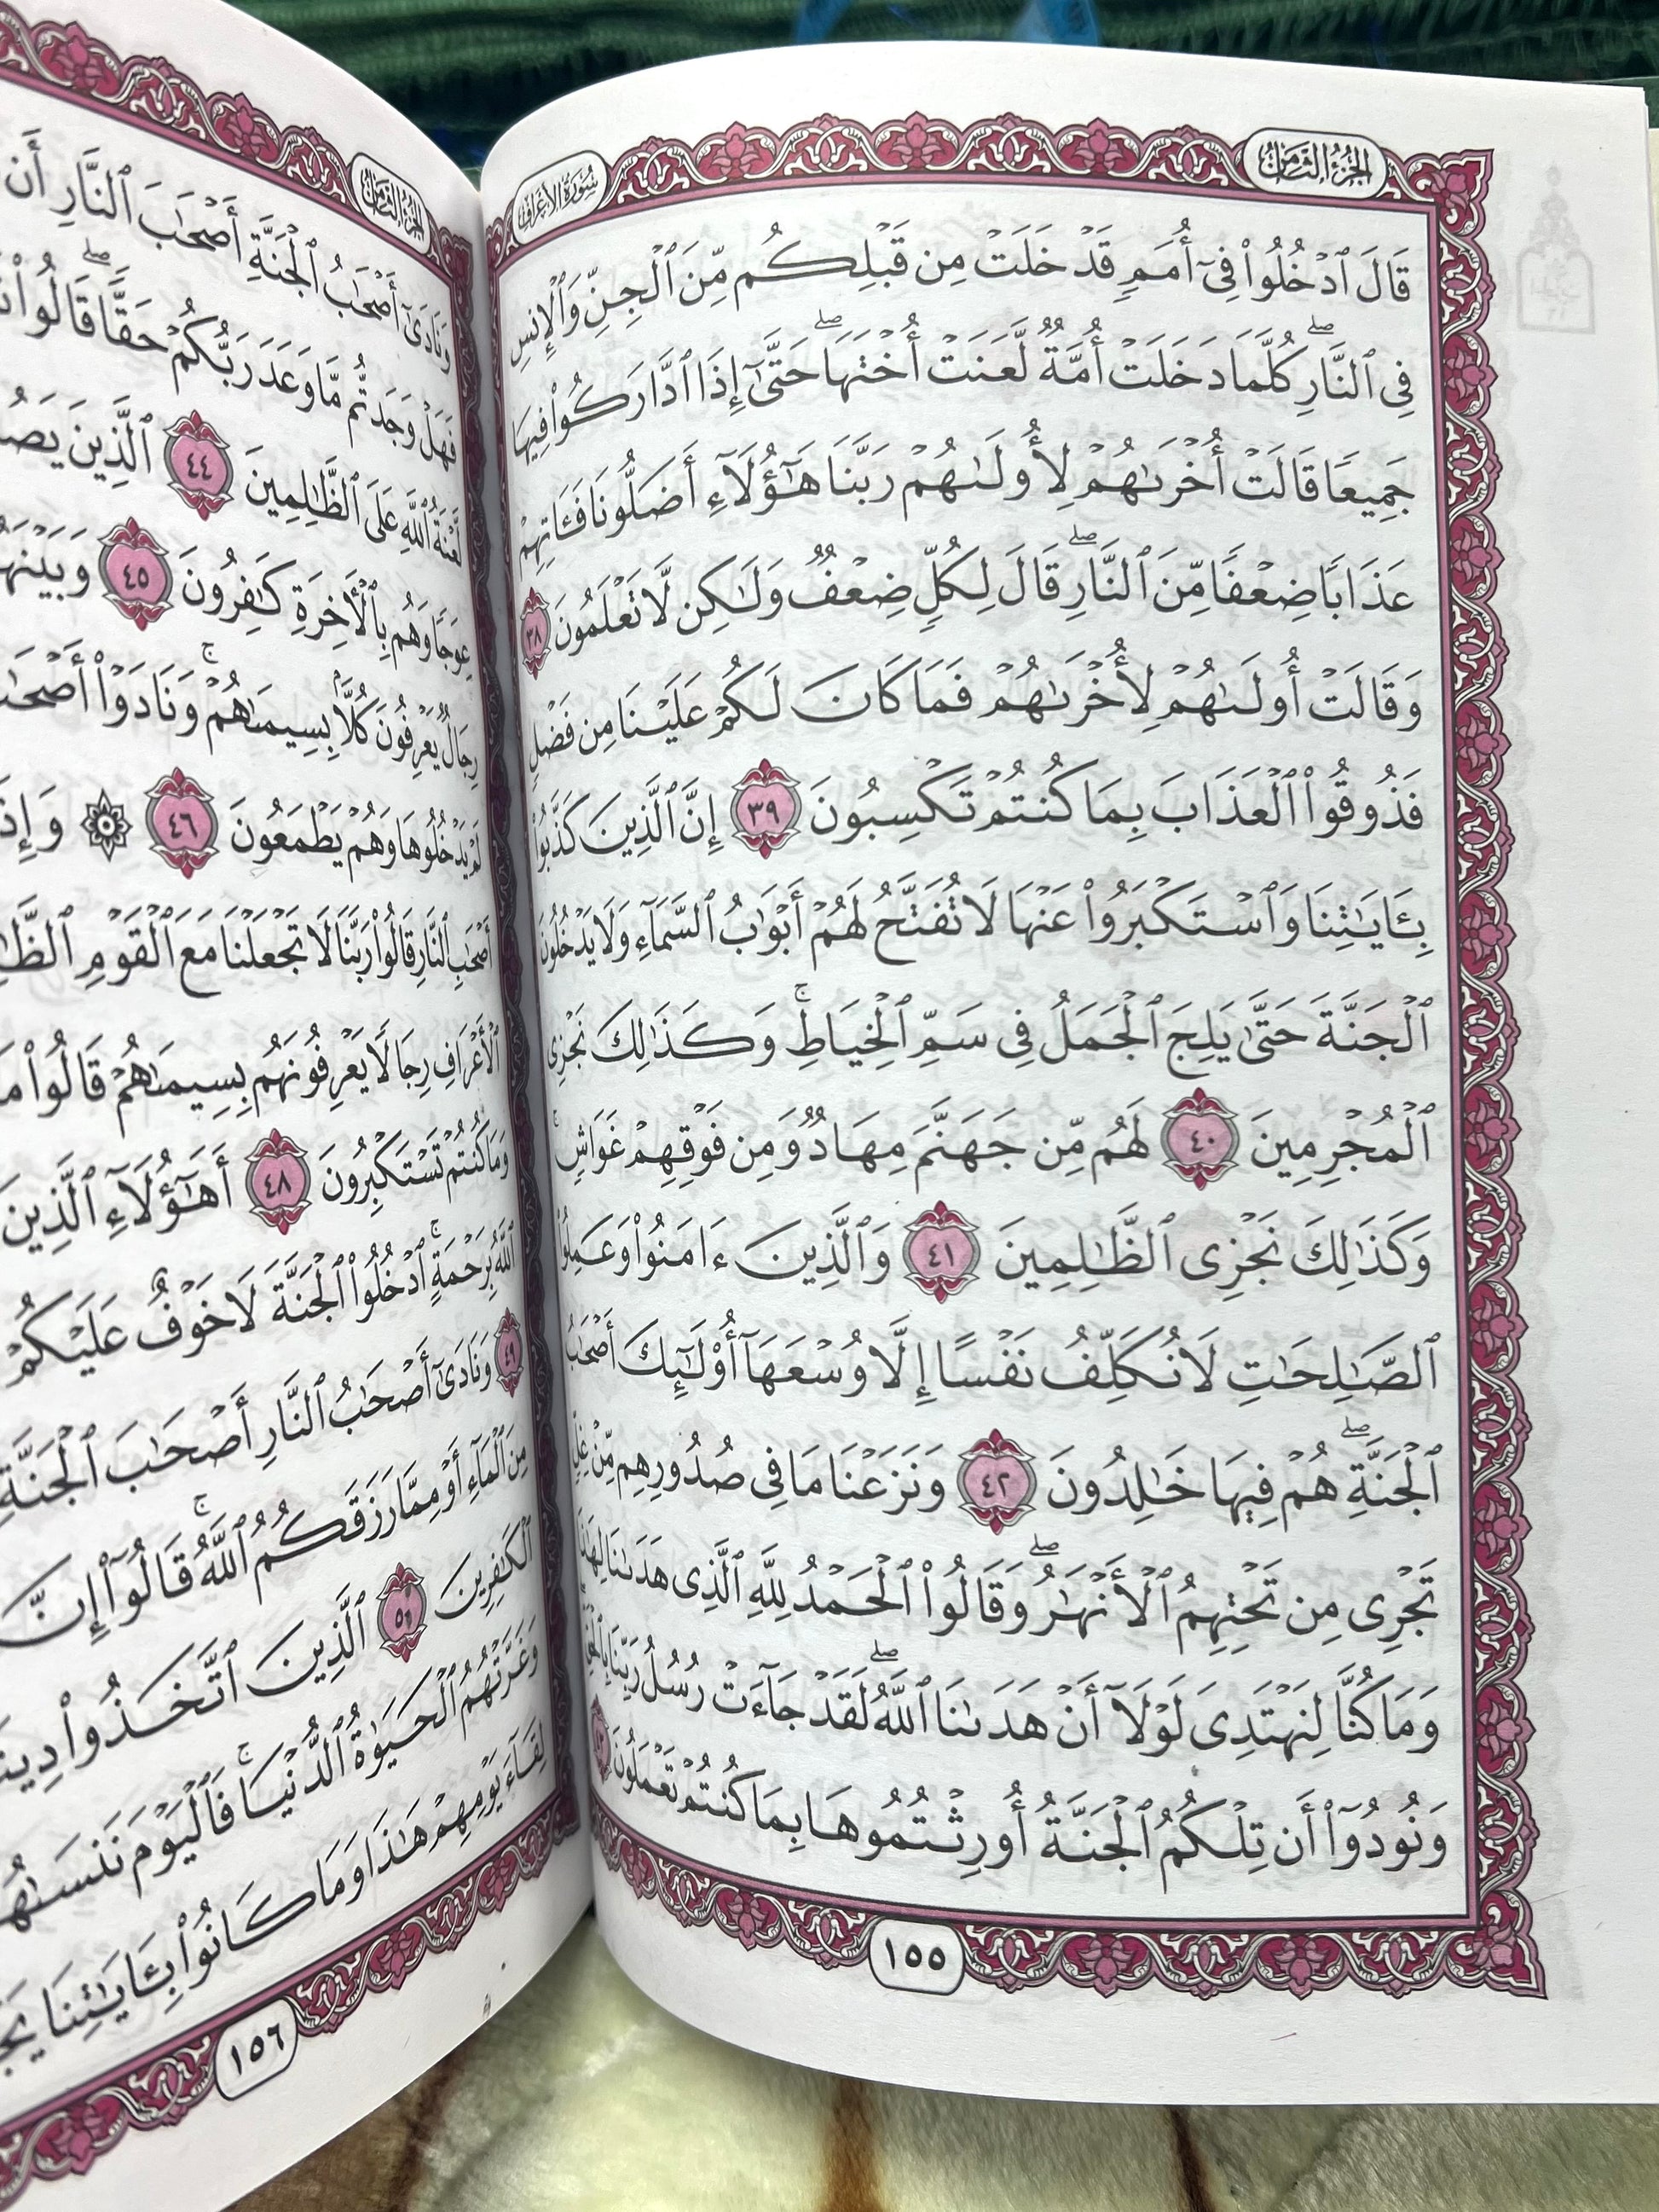 سُورَةُ الأَعْرَافِ
الجُزْءُ الثَّامِنُ
قَالَ ٱدْخُلُوا۟ فِىٓ أُمَمٍ قَدْ خَلَتْ مِن قَبْلِكُم مِّنَ ٱلْجِنِّ وَٱلْإِنسِ
فِى ٱلنَّارِ ۖ كُلَّمَا دَخَلَتْ أُمَّةٌ لَّعَنَتْ أُخْتَهَا ۖ حَتَّىٰٓ إِذَا ٱدَّارَكُوا۟ فِيهَا
جَمِيعًا قَالَتْ أُخْرَىٰهُمْ لِأُولَىٰهُمْ رَبَّنَا هَٰٓؤُلَآءِ أَضَلُّونَا فَـَٔاتِهِمْ
عَذَابًا ضِعْفًا مِّنَ ٱلنَّارِ ۖ قَالَ لِكُلٍّ ضِعْفٌ وَلَٰكِن لَّا تَعْلَمُونَ ٣٨
وَقَالَتْ أُولَىٰهُمْ لِأُخْرَىٰهُمْ فَمَا كَانَ لَكُمْ عَلَيْنَا مِن فَضْلٍ
فَذُوقُوا۟ ٱلْعَذَابَ بِمَا كُنتُمْ تَكْسِبُونَ ٣٩ إِنَّ ٱلَّذِينَ كَذَّبُوا۟
بِـَٔايَٰتِنَا وَٱسْتَكْبَرُوا۟ عَنْهَا لَا تُفَتَّحُ لَهُمْ أَبْوَٰبُ ٱلسَّمَآءِ وَلَا يَدْخُلُونَ
ٱلْجَنَّةَ حَتَّىٰ يَلِجَ ٱلْجَمَلُ فِى سَمِّ ٱلْخِيَاطِ ۚ وَكَذَٰلِكَ نَجْزِى
ٱلْمُجْرِمِينَ ٤٠ لَهُم مِّن جَهَنَّمَ مِهَادٌ وَمِن فَوْقِهِمْ غَوَاشٍ ۚ
وَكَذَٰلِكَ نَجْزِى ٱلظَّٰلِمِينَ ٤١ وَٱلَّذِينَ ءَامَنُوا۟ وَعَمِلُوا۟
ٱلصَّٰلِحَٰتِ لَا نُكَلِّفُ نَفْسًا إِلَّا وُسْعَهَآ أُو۟لَٰٓئِكَ أَصْحَٰبُ
ٱلْجَنَّةِ ۖ هُمْ فِيهَا خَٰلِدُونَ ٤٢ وَنَزَعْنَا مَا فِى صُدُورِهِم مِّنْ غِلٍّ
تَجْرِى مِن تَحْتِهِمُ ٱلْأَنْهَٰرُ ۖ وَقَالُوا۟ ٱلْحَمْدُ لِلَّهِ ٱلَّذِى هَدَىٰنَا لِهَٰذَا
وَمَا كُنَّا لِنَهْتَدِىَ لَوْلَآ أَنْ هَدَىٰنَا ٱللَّهُ ۖ لَقَدْ جَآءَتْ رُسُلُ رَبِّنَا بِٱلْحَقِّ ۖ
وَنُودُوٓا۟ أَن تِلْكُمُ ٱلْجَنَّةُ أُورِثْتُمُوهَا بِمَا كُنتُمْ تَعْمَلُونَ ٤٣
١٥٥
الجُزْءُ الثَّامِنُ
وَنَادَىٰٓ أَصْحَٰبُ ٱلْجَنَّةِ أَصْحَٰبَ ٱلنَّارِ أَن
فَهَلْ وَجَدتُّم مَّا وَعَدَ رَبُّكُمْ حَقًّا ۖ قَالُوا۟
لَّعْنَةُ ٱللَّهِ عَلَى ٱلظَّٰلِمِينَ ٤٤ ٱلَّذِينَ
عِوَجًا وَهُم بِٱلْـَٔاخِرَةِ كَٰفِرُونَ ٤٥
رِجَالٌ يَعْرِفُونَ كُلًّۢا بِسِيمَىٰهُمْ ۚ وَنَادَوْا۟
لَمْ يَدْخُلُوهَا وَهُمْ يَطْمَعُونَ ٤٦ ۞
أَصْحَٰبِ ٱلنَّارِ قَالُوا۟ رَبَّنَا لَا تَجْعَلْنَا مَعَ ٱلْقَوْمِ
ٱلْأَعْرَافِ رِجَالًا يَعْرِفُونَهُم بِسِيمَىٰهُمْ قَالُوا۟
وَمَا كُنتُمْ تَسْتَكْبِرُونَ ٤٨ أَهَٰٓؤُلَآءِ ٱلَّذِينَ
ٱللَّهُ بِرَحْمَةٍ ۚ ٱدْخُلُوا۟ ٱلْجَنَّةَ لَا خَوْفٌ عَلَيْكُمْ
٤٩ وَنَادَىٰٓ أَصْحَٰبُ ٱلنَّارِ أَصْحَٰبَ ٱلْجَنَّةِ
مِنَ ٱلْمَآءِ أَوْ مِمَّا رَزَقَكُمُ ٱللَّهُ ۚ قَالُوٓا۟ إِنَّ
ٱلْكَٰفِرِينَ ٥٠ ٱلَّذِينَ ٱتَّخَذُوا۟
وَغَرَّتْهُمُ ٱلْحَيَوٰةُ ٱلدُّنْيَا ۚ فَٱلْيَوْمَ نَنسَىٰهُمْ
لِقَآءَ يَوْمِهِمْ هَٰذَا وَمَا كَانُوا۟ بِـَٔايَٰتِنَا
١٥٦